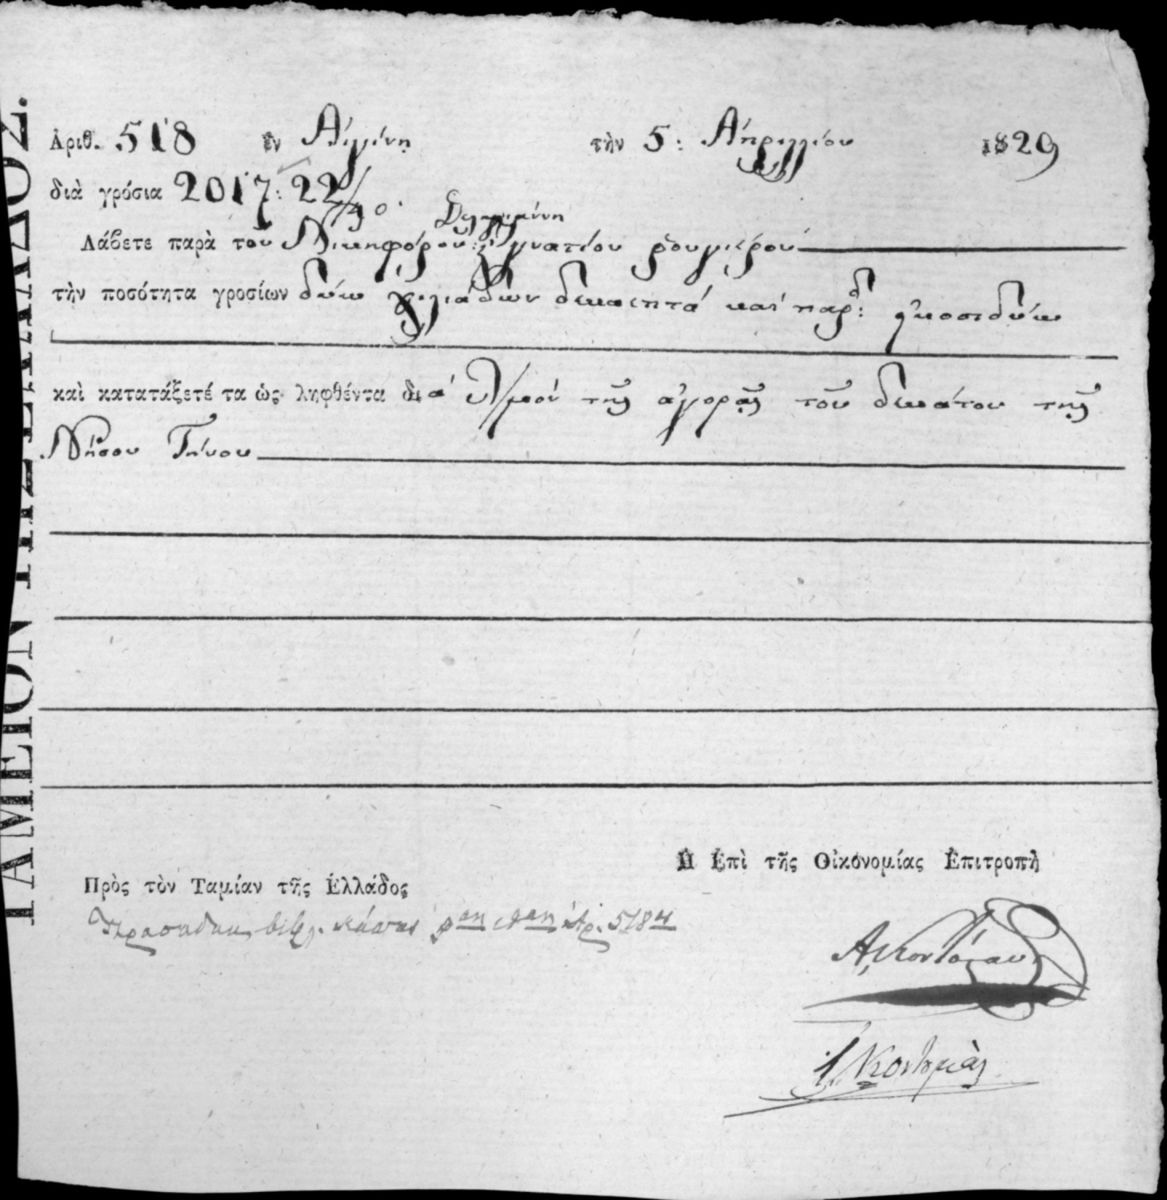 ΤΑΜΕΙΟΝ ΤΗΣ ΕΛΛΑΔΟΣ.
Ἀριθ. 518 ἐν Αἰγίνῃ τὴν 5: Ἀπριλλίου 1829
διὰ γρόσια 2017: 22/40.
Λάβετε παρὰ τοῦ Νικηφόρου: Ἰγνατίου
τὴν ποσότητα γροσίων δύω χιλιάδων δεκαεπτά καί παρ: εἰκοσιδύω
καὶ κατατάξετέ τα ὡς ληφθέντα διά τῆς ἀγορᾶς τοῦ δεκάτου τῆς
Νήσου Τήνου
Ἡ Ἐπὶ τῆς Οἰκονομίας Ἐπιτροπὴ
Πρὸς τὸν Ταμίαν τῆς Ἑλλάδος
Α. Κοντόσταυλος